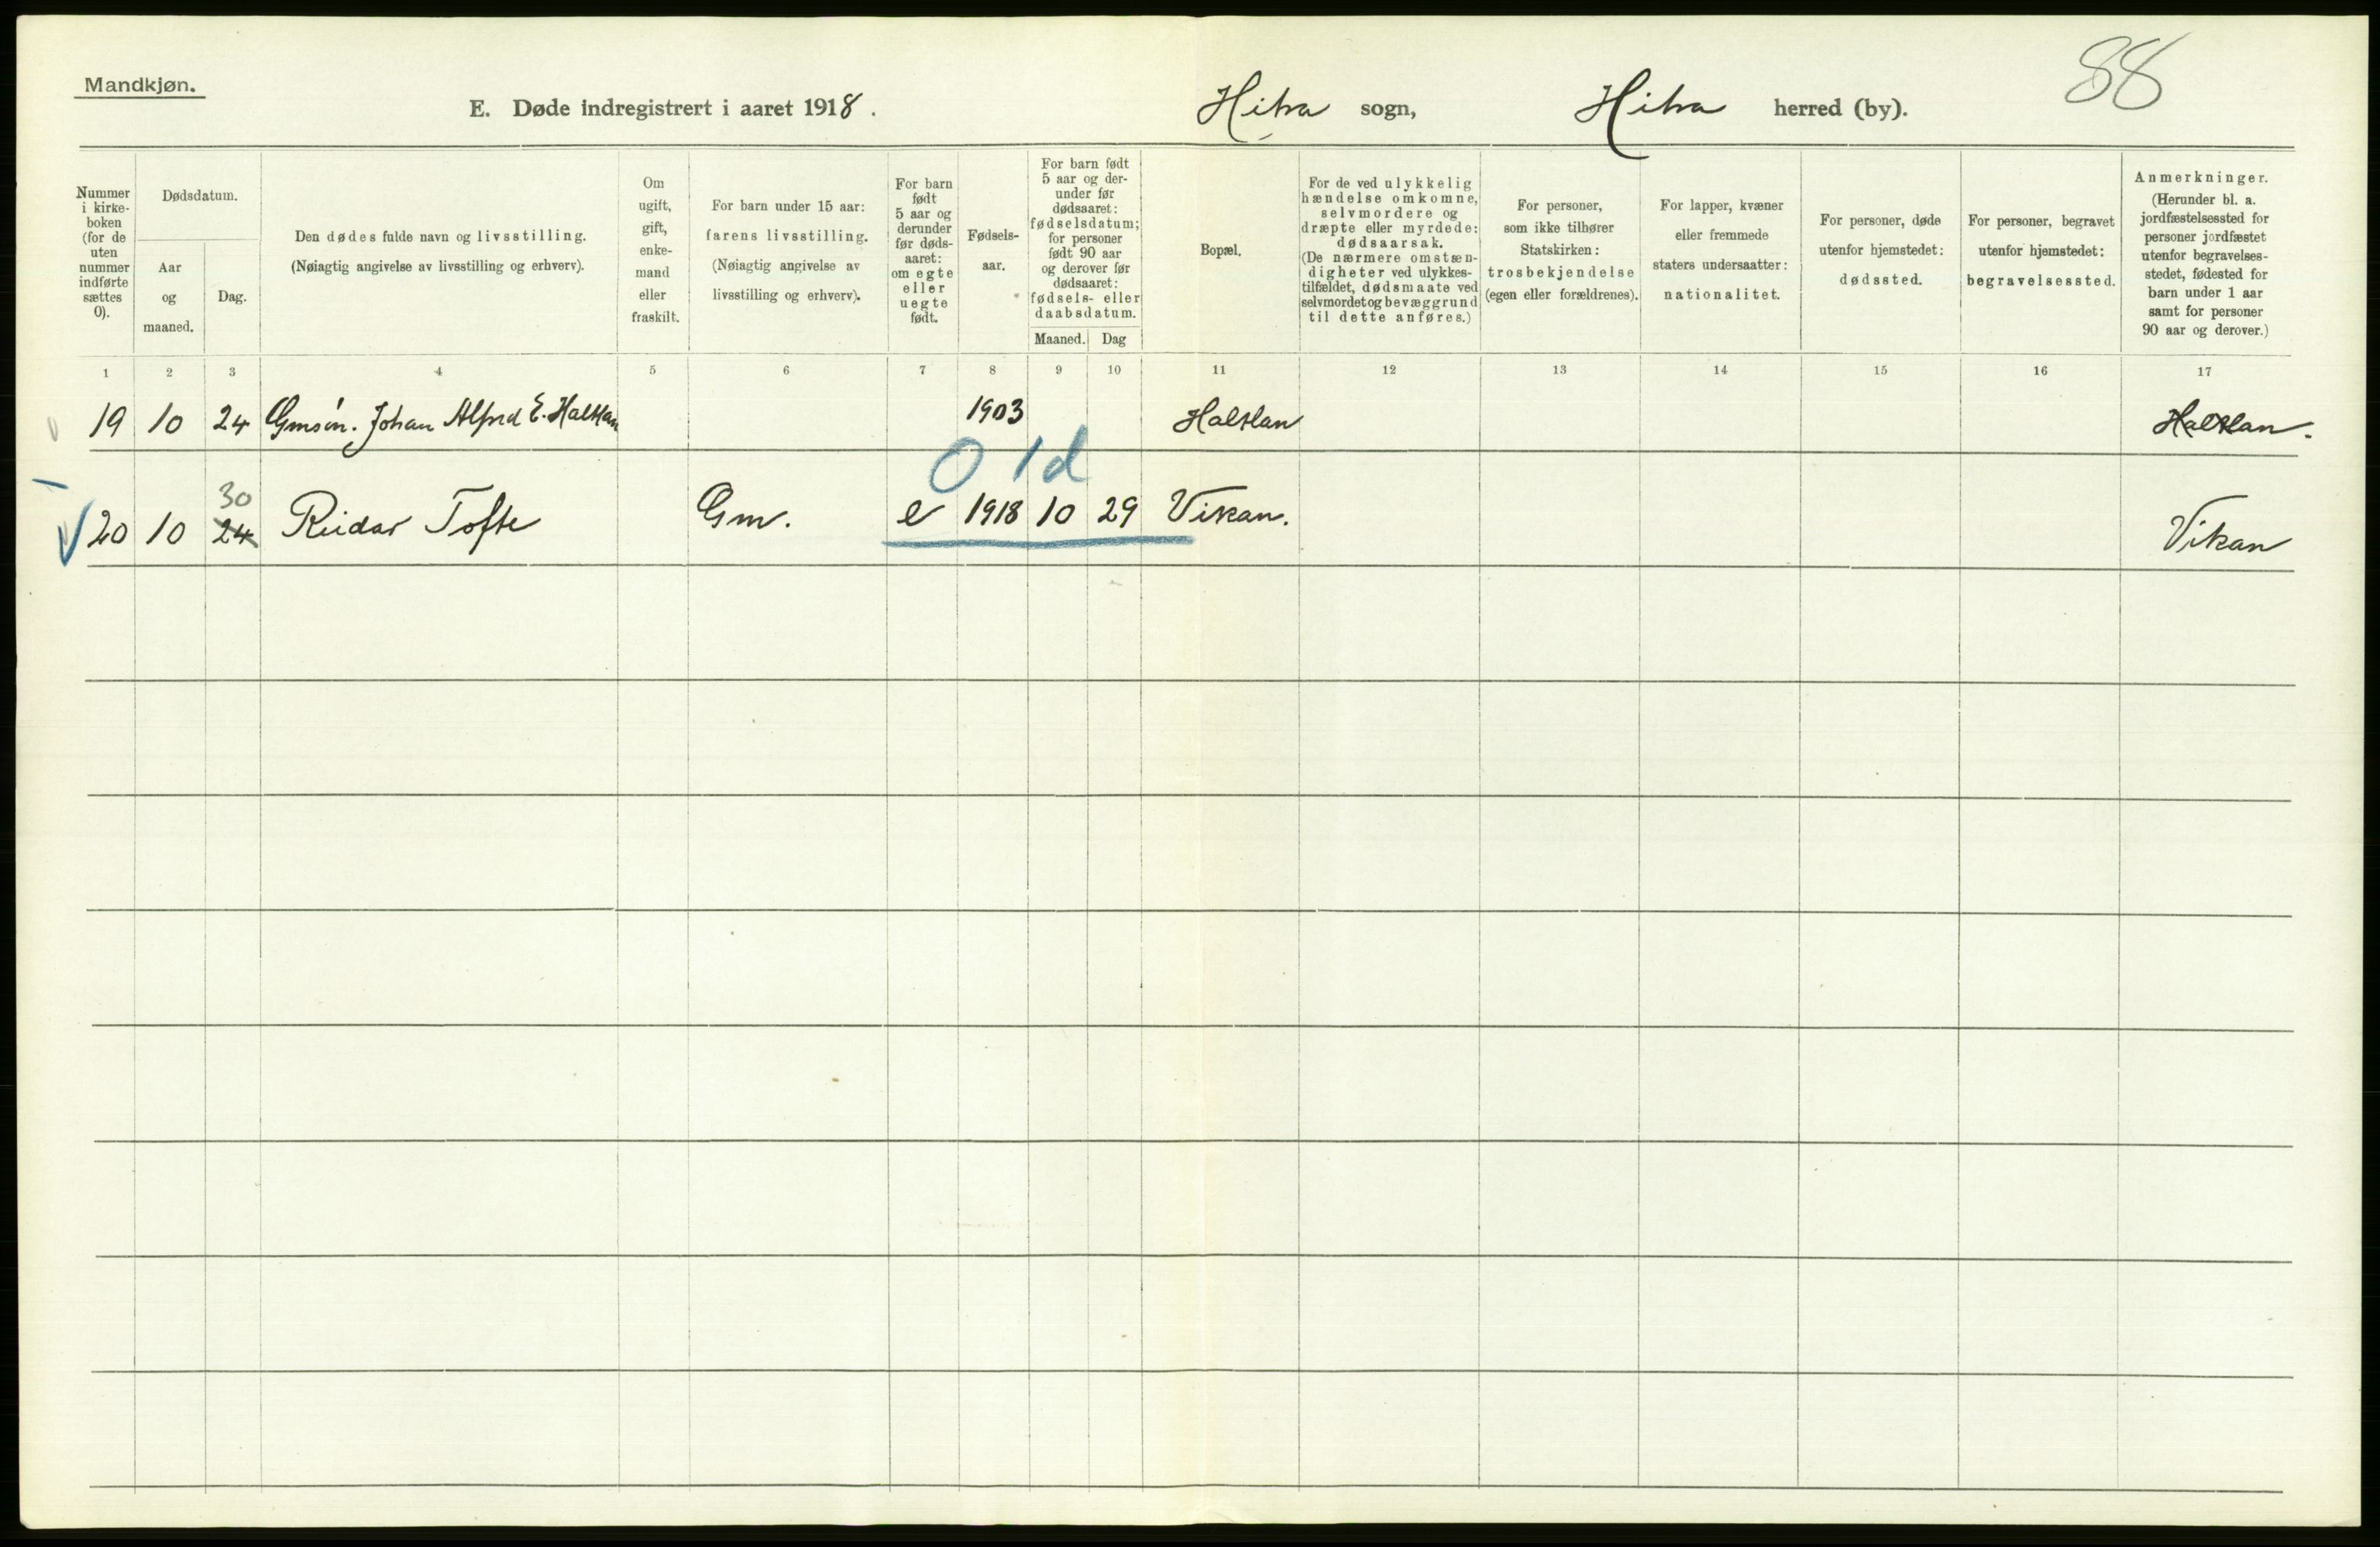 Mandkjøn.
88
E. Døde indregistrert i aaret 1918.
Hitra sogn, Hitra herred (by).
Nummer i kirke-boken (for de uten nummer indførte sættes 0).
Dødsdatum.
Aar og maaned.
Dag.
Den dødes fulde navn og livsstilling.
(Nøiagtig angivelse av livsstilling og erhverv).
Om ugift, gift, enke-mand eller fraskilt.
For barn under 15 aar: farens livsstilling.
(Nøiagtig angivelse av livsstilling og erhverv).
For barn født 5 aar og derunder før døds-aaret: om egte eller uegte født.
Fødsels-aar.
For barn født 5 aar og der-under før dødsaaret: fødselsdatum; for personer født 90 aar og derover før dødsaaret: fødsels- eller daabsdatum.
Maaned. Dag
Bopæl.
For de ved ulykkelig hændelse omkomne, selvmordere og dræpte eller myrdede: dødsaarsak.
(De nærmere omstæn-digheter ved ulykkes-tilfældet, dødsmaate ved selvmordet og bevæggrund til dette anføres.)
For personer, som ikke tilhører Statskirken: trosbekjendelse (egen eller forældrenes).
For lapper, kvæner eller fremmede staters undersaatter: nationalitet.
For personer, døde utenfor hjemstedet: dødssted.
For personer, begravet utenfor hjemstedet: begravelsessted.
Anmerkninger.
(Herunder bl. a. jordfæstelsessted for personer jordfæstet utenfor begravelses-stedet, fødested for barn under 1 aar samt for personer 90 aar og derover.)
1 2 3 4 5 6 7 8 9 10 11 12 13 14 15 16 17
19 10 24 Gmsøn. Johan Alfred E. Halstan 1903 Halstan Halstan.
0 1d
30
20 10 24 Reidar Tofte Gm. e 1918 10 29 Vikan. Vikan